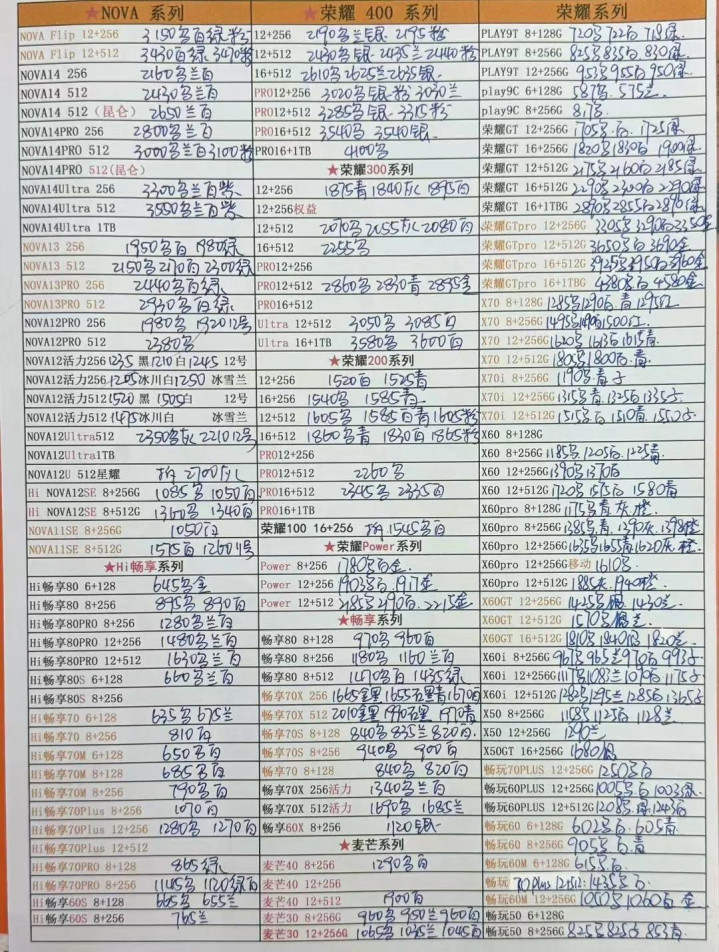 ★NOVA 系列
NOVA Flip 12+256 3150多百绿粉
NOVA Flip 12+512 3430百绿 3470粉
NOVA14 256 2160多兰百
NOVA14 512 2430多兰百
NOVA14 512（昆仑） 2650兰百
NOVA14PRO 256 2800多兰百
NOVA14PRO 512 3000多兰百3100粉
NOVA14PRO 512(昆仑)
NOVA14Ultra 256 3300多兰百紫
NOVA14Ultra 512 3550多兰百紫
NOVA14Ultra 1TB
NOVA13 256 1950多百 1980绿
NOVA13 512 2150多2170百 2300绿
NOVA13PRO 256 2440多百绿
NOVA13PRO 512 2930多百绿
NOVA12PRO 256 1980多 1920 12号
NOVA12PRO 512 2380多
NOVA12活力256 1235 黑1210白1245 12号
NOVA12活力256 1205冰川白1250 冰雪兰
NOVA12活力512 1520 黑 1505白 12号
NOVA12活力512 1475冰川白 冰雪兰
NOVA12Ultra512 2350多灰 2210 12号
NOVA12Ultra1TB
NOVA12U 512星耀 2700
Hi NOVA12SE 8+256G 1085多 1050百
Hi NOVA12SE 8+512G 1360多 1340百
NOVA11SE 8+256G 1050百
NOVA11SE 8+512G 1575百 1260 11号
★Hi畅享系列
Hi畅享80 6+128 645多金
Hi畅享80 8+256 895多 890百
Hi畅享80PRO 8+256 1280多兰百
Hi畅享80PRO 12+256 1480多兰百
Hi畅享80PRO 12+512 1630多兰百
Hi畅享80S 6+128 660多兰百
Hi畅享80S 8+256
Hi畅享70 6+128 635多 675兰
Hi畅享70 8+256 810百
Hi畅享70M 6+128 650多百
Hi畅享70M 8+128 685多百
Hi畅享70M 8+256 790多百
Hi畅享70Plus 8+256 1070百
Hi畅享70Plus 12+256 1280多 1270百
Hi畅享70Plus 12+512
Hi畅享70PRO 8+128 865绿
Hi畅享70PRO 8+256 1145多 1120绿百
Hi畅享60S 8+128 665多 655兰
Hi畅享60S 8+256 765兰
★荣耀 400 系列
12+256 2190多兰银 2195粉
12+512 2430多银 2435兰 2440粉
16+512 2610多2625兰2635银
PRO12+256 3020多银粉 3030兰
PRO12+512 3285多银 3315粉
PRO16+512 3540多 3540银
PRO16+1TB 4100多
★荣耀300系列
12+256 1875青 1840灰 1895百
12+256权益
12+512 2070多2055灰 2080百
16+512 2255多
PRO12+256
PRO12+512 2860多2830青 2895金
PRO16+512
Ultra 12+512 3050多 3085百
Ultra 16+1TB 3580多 3600百
★荣耀200系列
12+256 1520百 1525青
16+256 1540多 1585青
12+512 1605多 1585百青1605粉
16+512 1860多青 1830百 1865粉
PRO12+256
PRO12+512 2260多
PRO16+512 2345多 2335百
PRO16+1TB
荣耀100 16+256 1545多百
★荣耀Power系列
Power 8+256 1780多百金
Power 12+256 1903多百 1917金
Power 12+512 2185多2190百 2215金
★畅享系列
畅享80 8+128 970多 960百
畅享80 8+256 1180多 1160兰百
畅享80 8+512 1470多百 1435绿
畅享70X 256 1665金黑 1655石墨青1670百
畅享70X 512 2010金黑 1990石墨 1970青
畅享70S 8+128 840多 835兰 820百
畅享70S 8+256 940多 900百
畅享70 8+128 840多 820百
畅享70X 256活力 1340多兰百
畅享70X 512活力 1690多 1685兰
畅享60X 8+256 1120银
★麦芒系列
麦芒40 8+256 1290多百
麦芒40 12+256
麦芒40 12+512 1900百
麦芒30 8+256G 960多 950兰 960百
麦芒30 12+256G 1065多 1035兰 1045百
荣耀系列
PLAY9T 8+128G 720多 722百 718绿
PLAY9T 8+256G 825多835百 830绿
PLAY9T 12+256G 953多955百 950绿
play9C 6+128G 587多 575兰
play9C 8+256G 817多
荣耀GT 12+256G 1705多百 1725绿
荣耀GT 16+256G 1820多1830百 1900绿
荣耀GT 12+512G 2175多2160百 2185绿
荣耀GT 16+512G 2290多2300百 2290绿
荣耀GT 16+1TBG 2890多2855百 2890绿
荣耀GTpro 12+256G 3305多3290百3350金
荣耀GTpro 12+512G 3650多百 3690金
荣耀GTpro 16+512G 3925多3950百3960金
荣耀GTpro 16+1TBG 4380多百 4580金
X70 8+128G 1285多1290百 青1295红
X70 8+256G 1495多1490百1500红
X70 12+256G 1620多1613百1615青
X70 12+512G 1805多1800百青
X70i 8+256G 1190多青子
X70i 12+256G 1315多青1325百1335子
X70i 12+512G 1515多百 1510青1550子
X60 8+128G
X60 8+256G 1185多1205百1225青
X60 12+256G 1390多1370百
X60 12+512G 1720多1575百 1580青
X60pro 8+128G 1175多青灰橙
X60pro 8+256G 1385多青1390灰1398橙
X60pro 12+256G 1635多1655青1620灰橙
X60pro 12+256G移动 1610多
X60pro 12+512G 1885灰1940橙
X60GT 12+256G 1425多银 1430兰
X60GT 12+512G 1570多银兰
X60GT 16+512G 1810多1840银1820兰
X60i 8+256G 967多965兰970百993子
X60i 12+256G 1117多1083兰1070百1175子
X60i 12+512G 1282多1295兰1285百1365子
X50 8+256G 1158多1125百1128兰
X50 12+256G 1290兰
X50GT 16+256G 1680银
畅玩70PLUS 12+256G 1250多百
畅玩60PLUS 12+256G 1005多百 1003绿
畅玩60PLUS 12+512G 1208多绿1243百
畅玩60 6+128G 602多百 605青
畅玩60 8+256G 905多百青
畅玩60M 6+128G 615多百
畅玩 70plus 12+512: 1435多百
畅玩60M 12+256G 1050多1060百 金
畅玩50 6+128G
畅玩50 8+256G 825多825子 853青